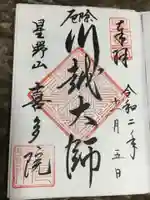 奉拝
令和二年
八月五日
厄除
川越大師
星野山
喜多院